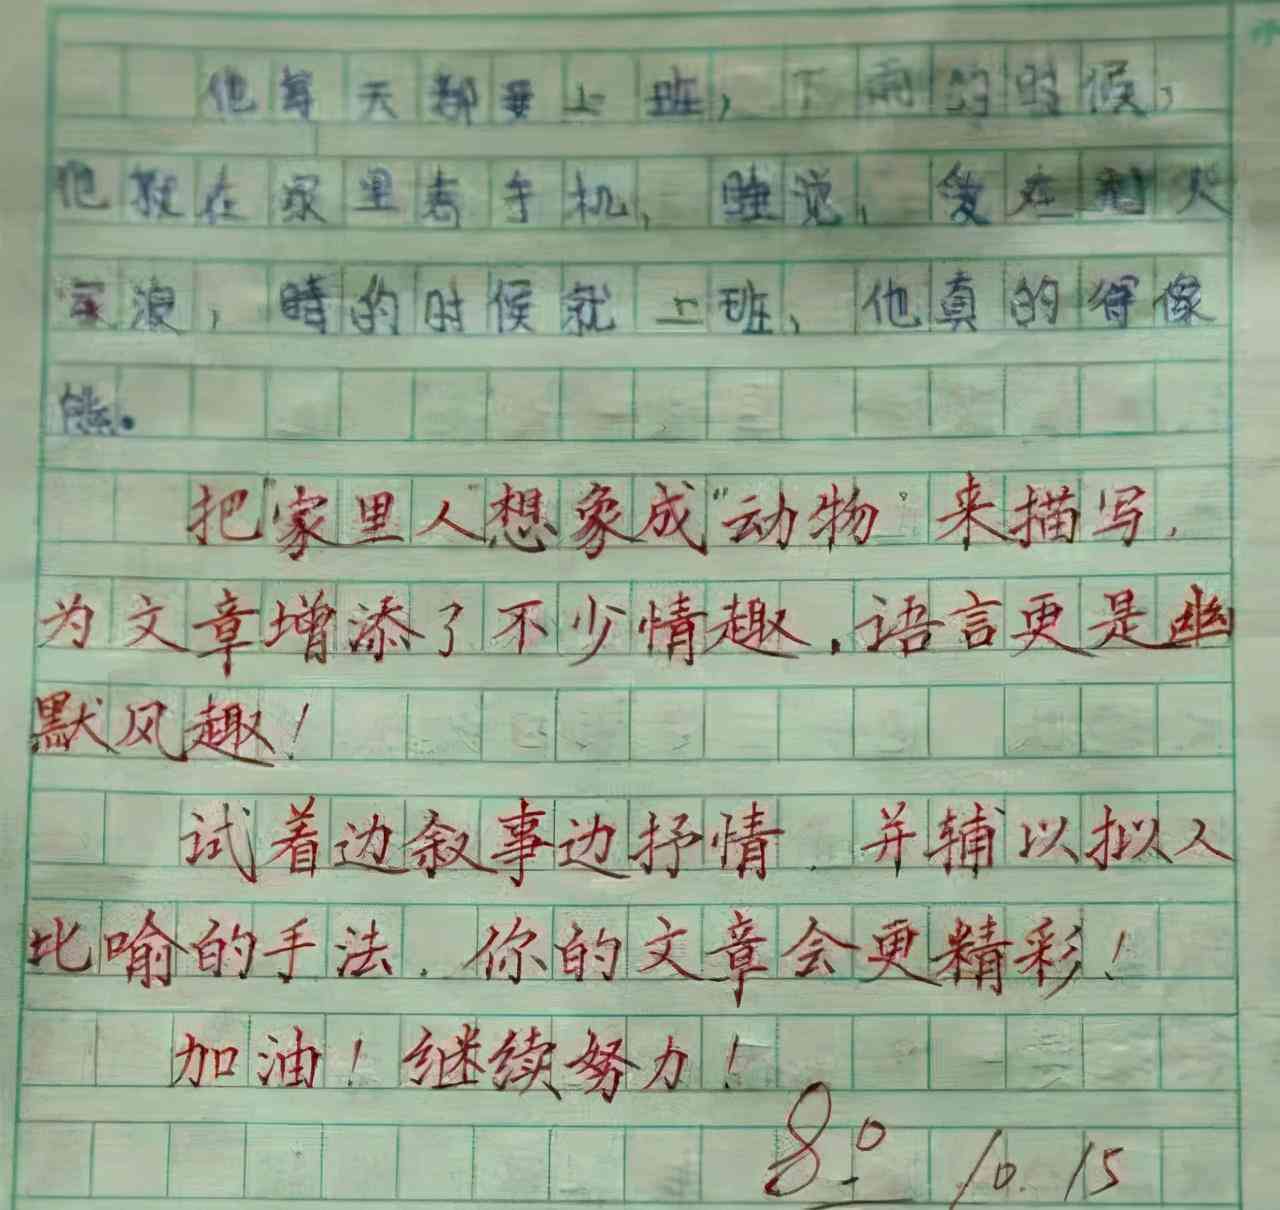 他每天都要上班，下雨的时候，
他就在家里看手机，睡觉，
浪，晴的时候就上班，他真的得像
熊。
把"家里人"想象成"动物"来描写，
为文章增添了不少情趢，语言更是幽
默风趣！
试着边叙事边抒情，并辅以拟人
比喻的手法，你的文章会更精彩！
加油！继续努力！
80 10.15